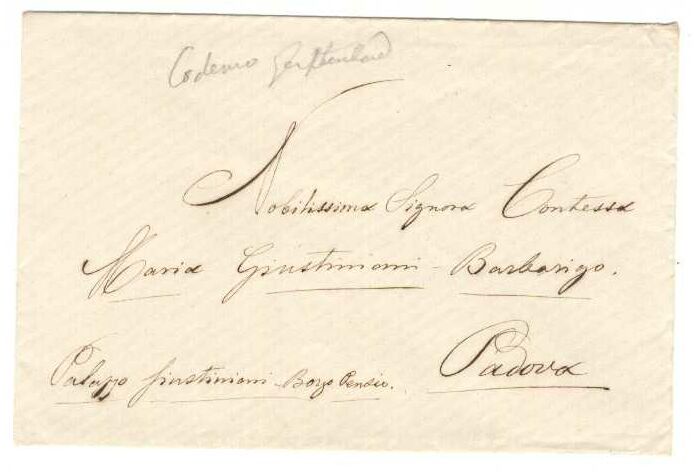 Codemo Gerstenbrand
Nobilissima Signora Contessa
Maria Giustiniani-Barbarigo.
Palazzo Giustiniani-Borgo
Padova